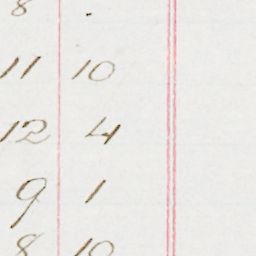 8 .
11 10
12 4
9 1
8 10